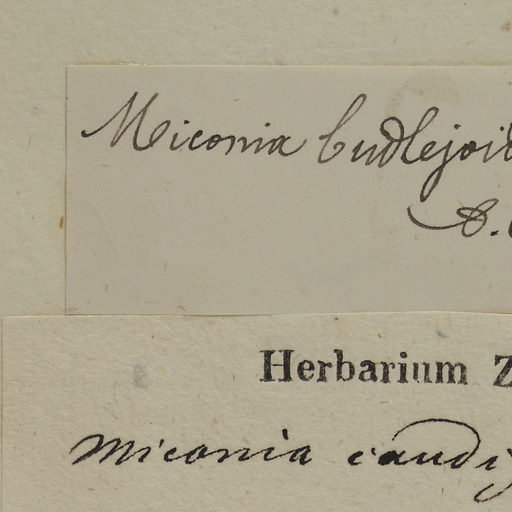 Miconia budlejoid
B. 
Herbarium Z
Miconia caudi